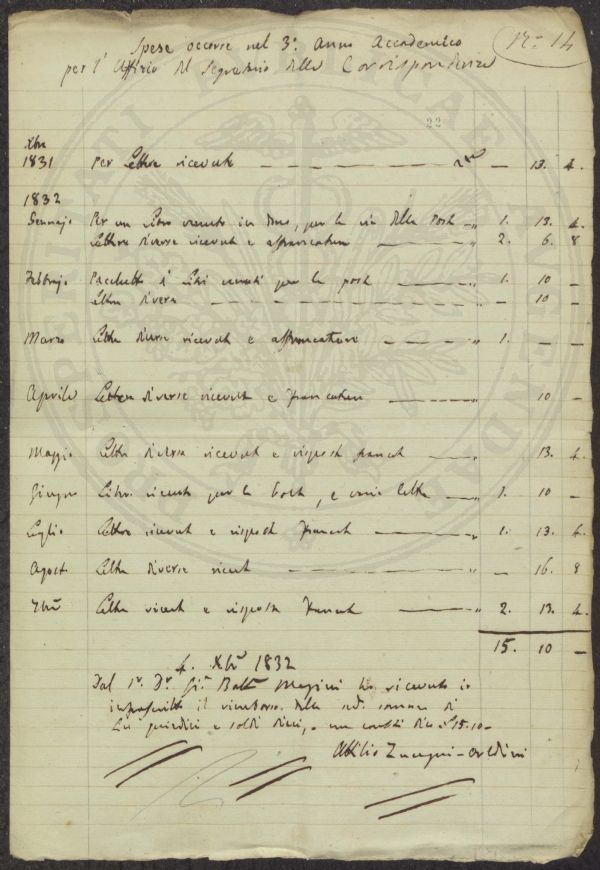 Spese occorse nel 3º: Anno Accademico
Nº: 14
per l'Uffizio del Segretario delle Corrispondenze
22
Xbre
1831 Per Lettere ricevute — — — — — 13. 4.
1832
Gennajo Per un Libro venuto per la via della Posta — " 1. 13. 4.
Lettere diverse ricevute e affrancature — " 2. 6. 8
Febbrajo Pacchetto di Libri venuti per la posta — " 1. 10 —
Lettere diverse — — — — " — 10 —
Marzo Lettere diverse ricevute e affrancature — — " 1. — —
Aprile Lettere diverse ricevute e francature — — " 10 —
Maggio Lettere diverse ricevute e risposte francate — " 13. 4.
Giugno Libro ricevuto per la Posta, e varie lettere — " 1. 10 —
Luglio Lettere ricevute e risposte francate — " 1. 13. 4.
Agosto Lettere diverse ricevute — " — 16. 8
7bre Lettere ricevute e risposte francate — " 2. 13. 4.
15. 10 —
4. Xbre 1832
Dal Sr. Dr. Gio. Batta Magini ho ricevuto io
infrascritto il rimborso della sudd. somma di
Lire quindici e soldi dieci, — dico £ 15.10 —
Attilio Zuccagni-Orlandini